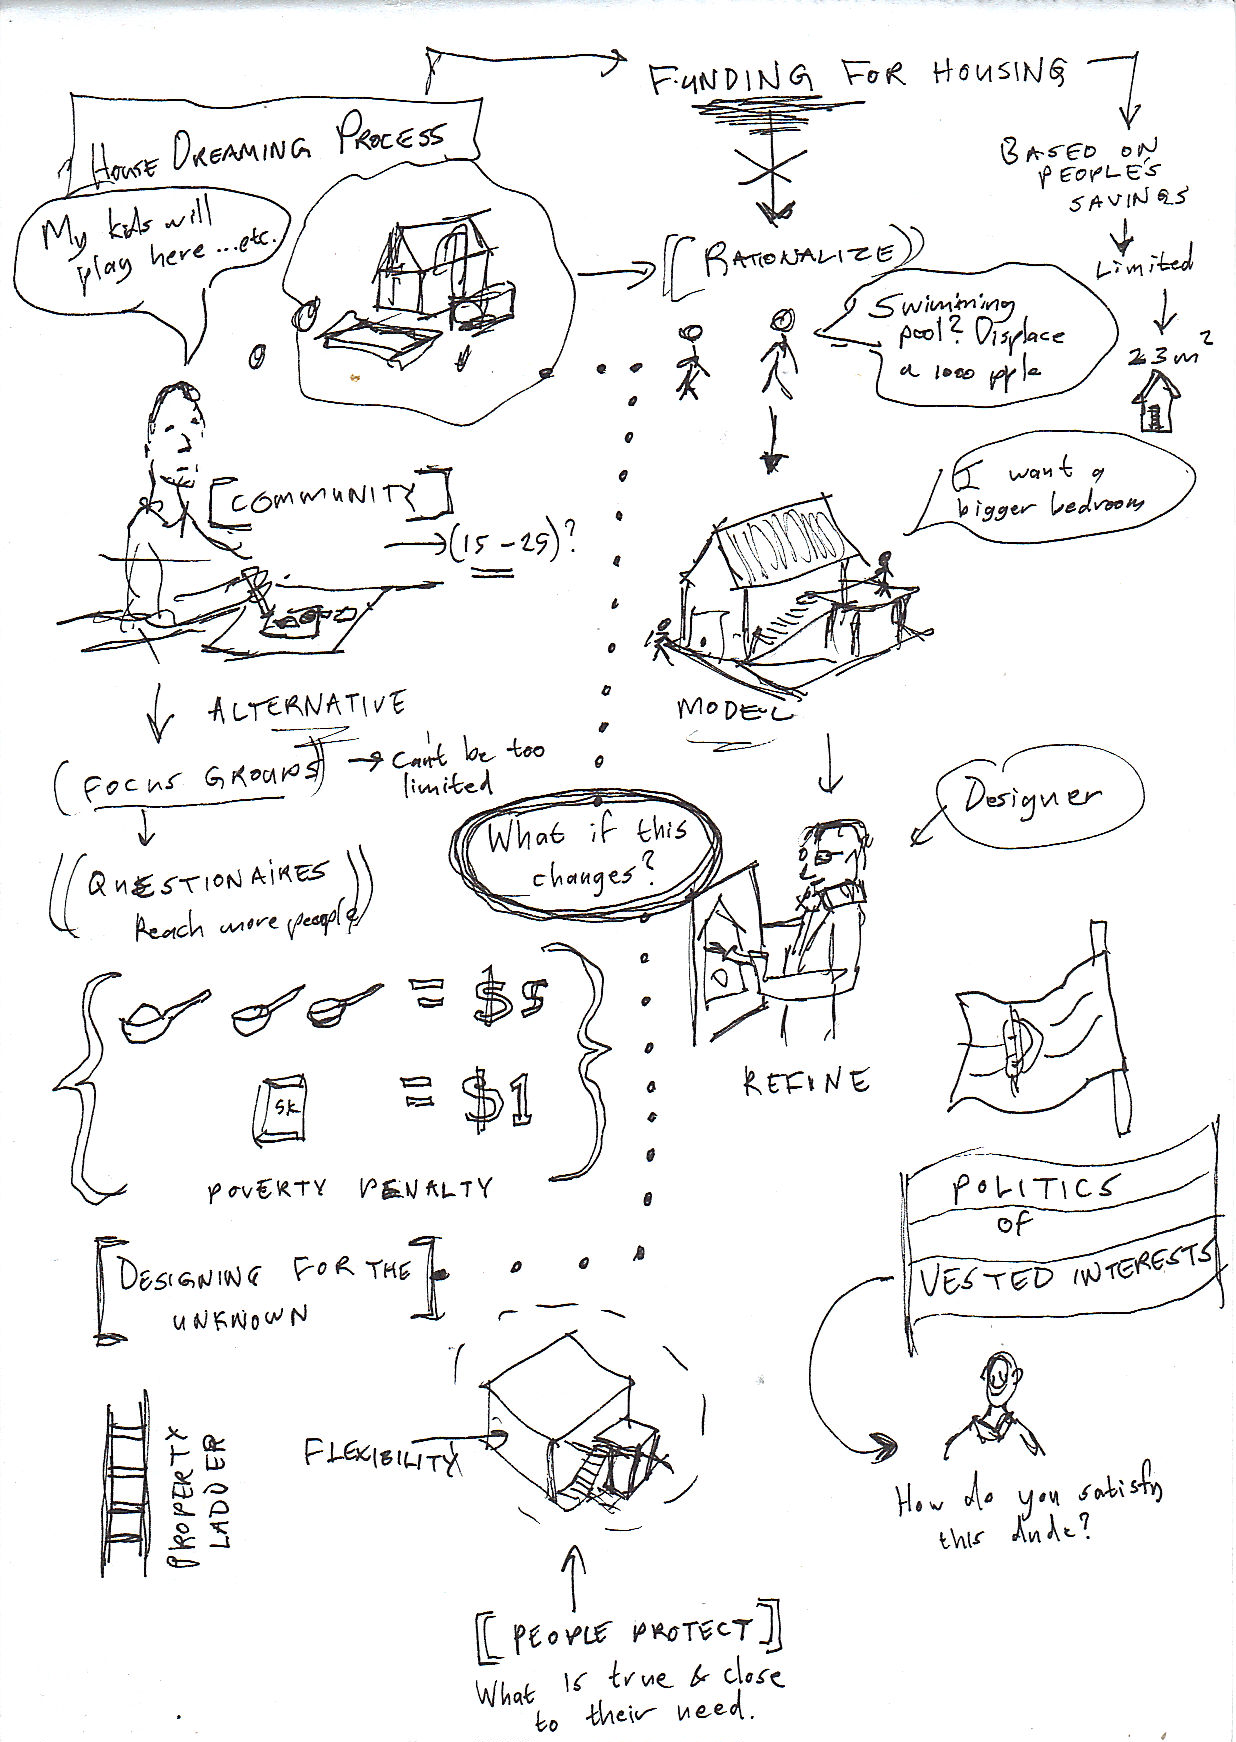 FUNDING FOR HOUSING
HOUSE DREAMING PROCESS
BASED ON
PEOPLE'S
SAVINGS
Limited
23m²
My kids will
play here ...etc.
[[RATIONALIZE))
Swimming
pool? Displace
a 1000 pple
I want a
bigger bedroom
[COMMUNITY]
(15-25)?
MODEL
ALTERNATIVE
(FOCUS GROUPS)
Can't be too
limited
((QUESTIONAIRES
Reach more people))
What if this
changes?
Designer
REFINE
= $5
SK
= $1
POVERTY PENALTY
POLITICS
OF
VESTED INTERESTS
How do you satisfy
this dude?
[DESIGNING FOR THE
UNKNOWN]
PROPERTY
LADDER
FLEXIBILITY
[[PEOPLE PROTECT]]
What is true & close
to their need.